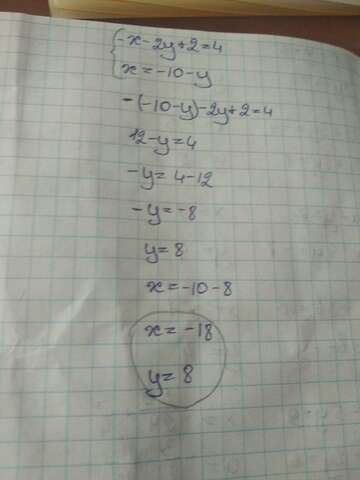 -x-2y+2=4
x=-10-y
-(-10-y)-2y+2=4
12-y=4
-y=4-12
-y=-8
y=8
x=-10-8
x=-18
y=8